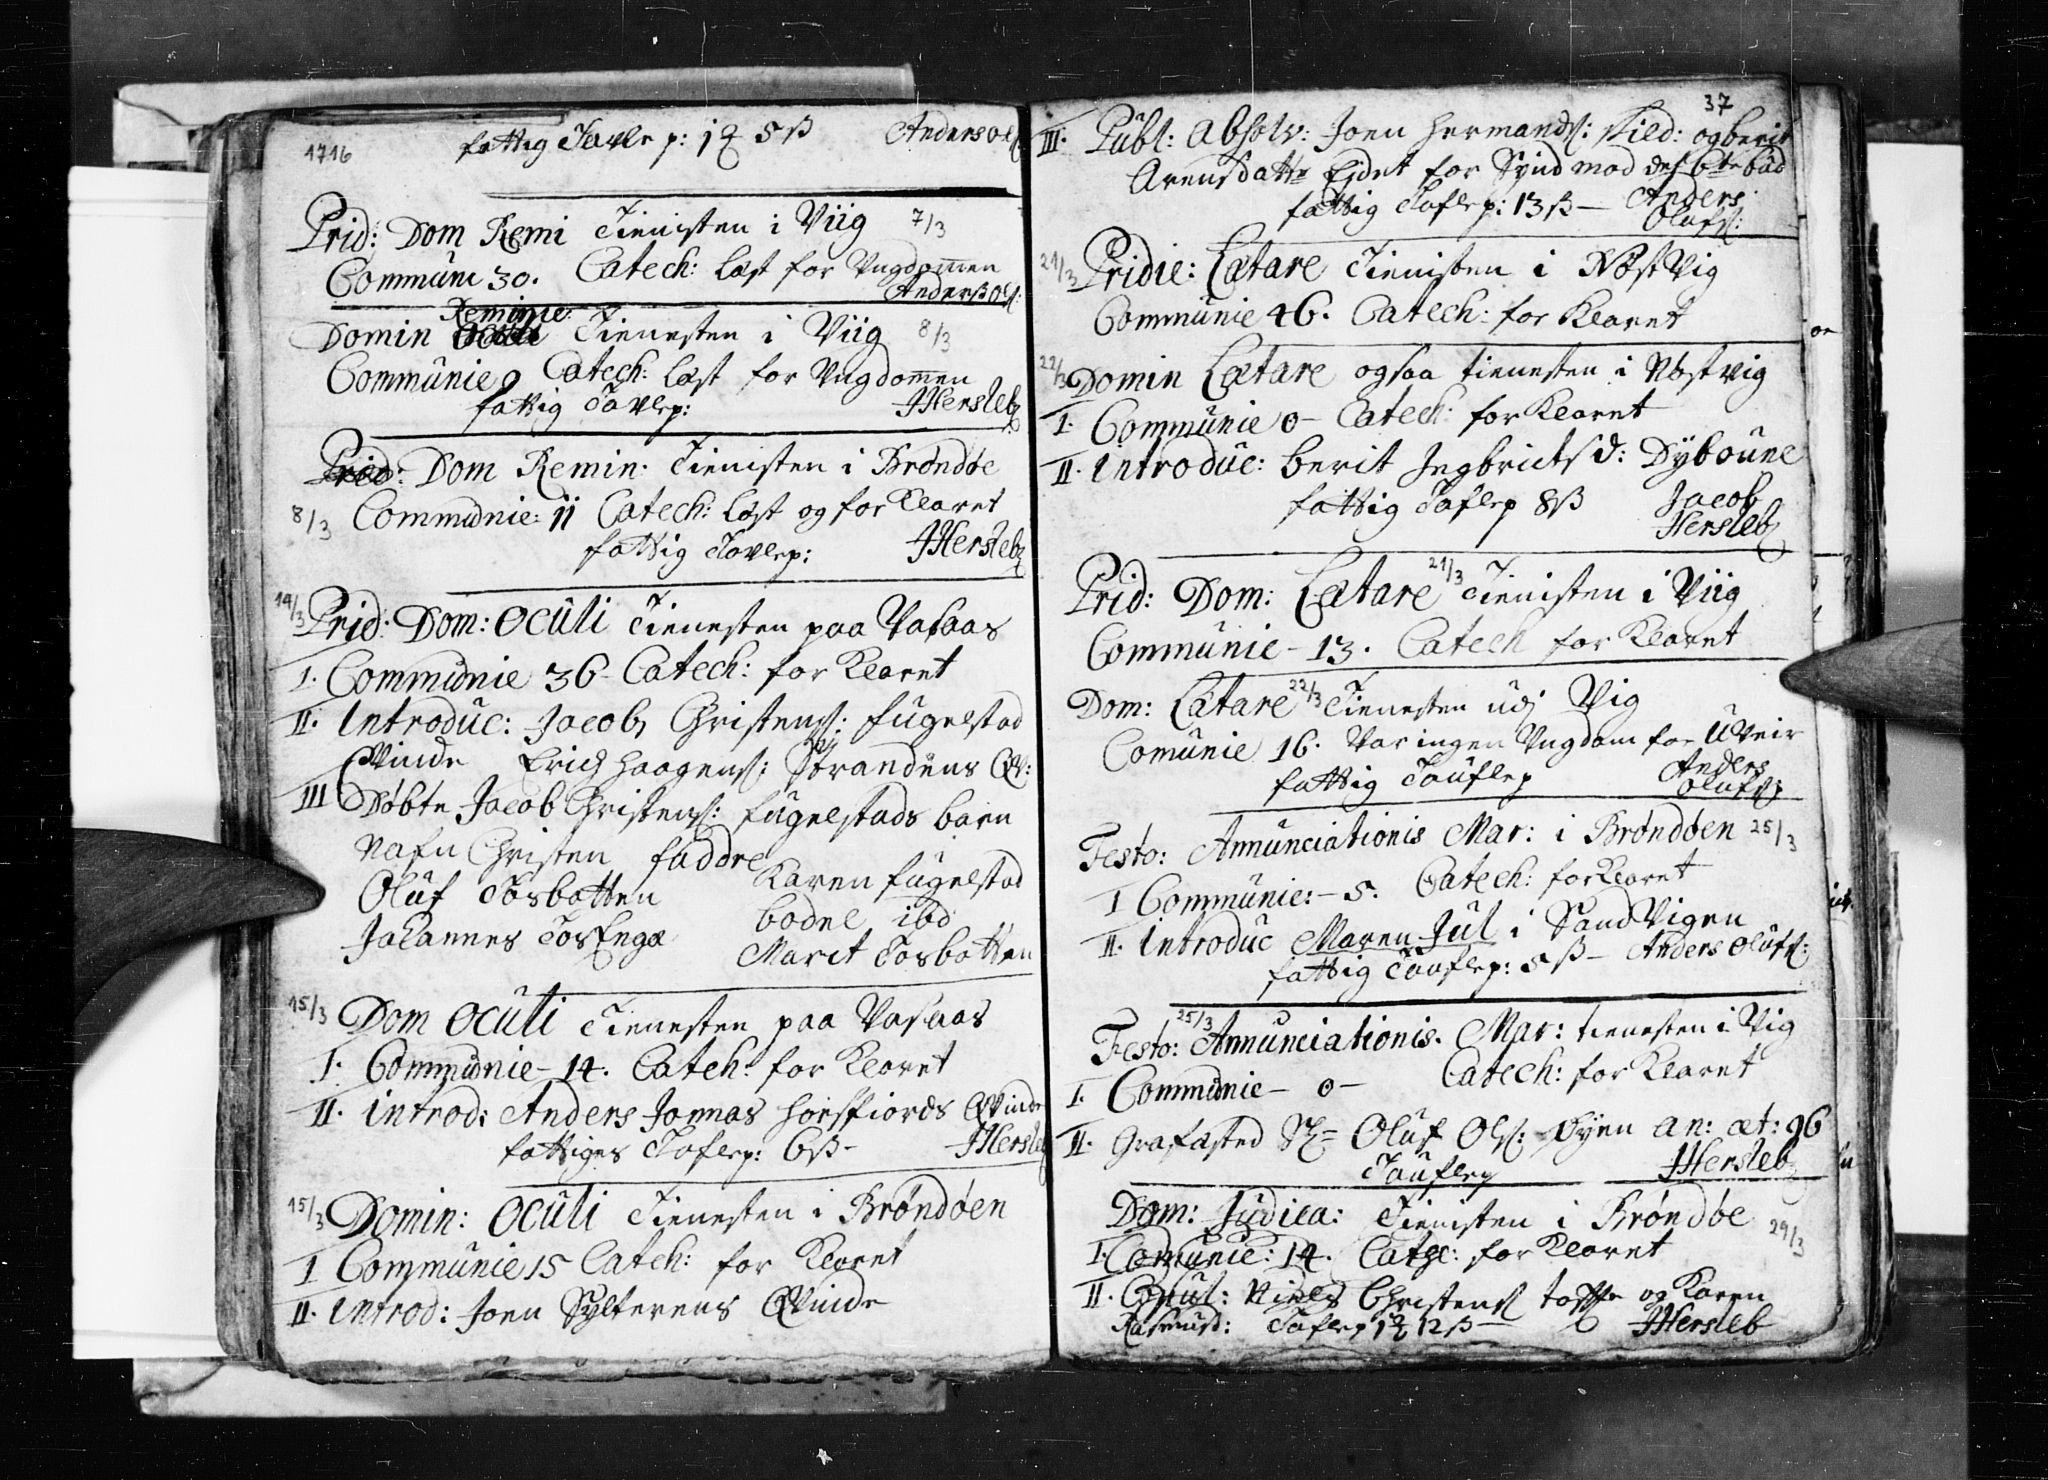 1716
fattig Tavle p: 1 5 ß Anders Ols:
Prid: Dom Remi Tienisten i Viig 7/3
Commun 30. Catech: læst for Ungdommen
Anders Ols:
Reminie:
Domin Tienesten i Viig 8/3
Communie 9 Catech: læst for Ungdommen
fattig Tavlep: JHersleb
Prid: Dom Remin. Tienisten i Brøndøe
8/3 Communie: 11 Catech: læst og forklaret
fattig Tavlep: JHersleb
14/3 Prid: Dom: Oculi Tienesten paa Vasaas
I. Communie 36 - Catech: forklaret
II. Introduc: Jacob Christens: fugelstad
Qvinde Erich Haagens: Strandens Qv:
III Døbte Jacob Christens: fugelstads barn
Nafn Christen faddre
Karen fugelstad
Oluf Tosbotten
bodel ibd
Johannes TosEnga
Marit Tosbotten
15/3 Dom Oculi Tienesten paa Vasaas
I. Communie - 14. Cateh: forklaret
II. introd: Anders Jonnas Horsfiords Qvinde
fattiges Taflep: 6ß - JHersleb
15/3 Domin: Oculi Tienesten i Brøndøen
I Communie 15 Cateh: forklaret
II. introd: Joen Sylterens Qvinde
37
III. Publ: Absolv: Joen Hermands: Kild: og berit
Arensdattr Eidet for Synd mod des 6te bud
fattig Taflep: 13ß - Anders
Olufs:
21/3 Pridie: Lætare Tienisten i Nøstvig
Communie 46. Catech: forklaret
22/3 Domin Lætare ogsaa tienesten i Nøstvig
I. Communie 0 - Catech: forklaret
II. introduc: berit Ingbrictsd: Dyboune
fattig Taflep 8ß Jacob
Hersleb
Prid: Dom: Lætare 21/3 Tienisten i Viig
Communie - 13. Catech forklaret
Dom: Lætare 22/3 Tienesten udi Vig
Comunie 16. Var ingen Ungdom for Uveir
fattig Tauflep Anders
Olufs:
Festo: Annunciationis Mar: i Brøndøen 25/3
I Communie: - 5. Catech: forklaret
II. introduc Maren Jul i Sandvigen
fattig Tauflep: 5ß - Anders Olufs:
25/3
Festo: Annunciationis. Mar: tienesten i Vig
I. Communie - 0 - Catech: forklaret
II. Grafæsted Sl= Oluf Ols: Øyen an: æt: 96
Tauflep JHersleb
Dom: Judica: Tienisten i Brøndøe 29/3
I. Comunie: 14. Cathe: forklaret
II. Copul: Niels Christens tofte og Karen
Rasmusd: Taflep 1 12ß JHersleb